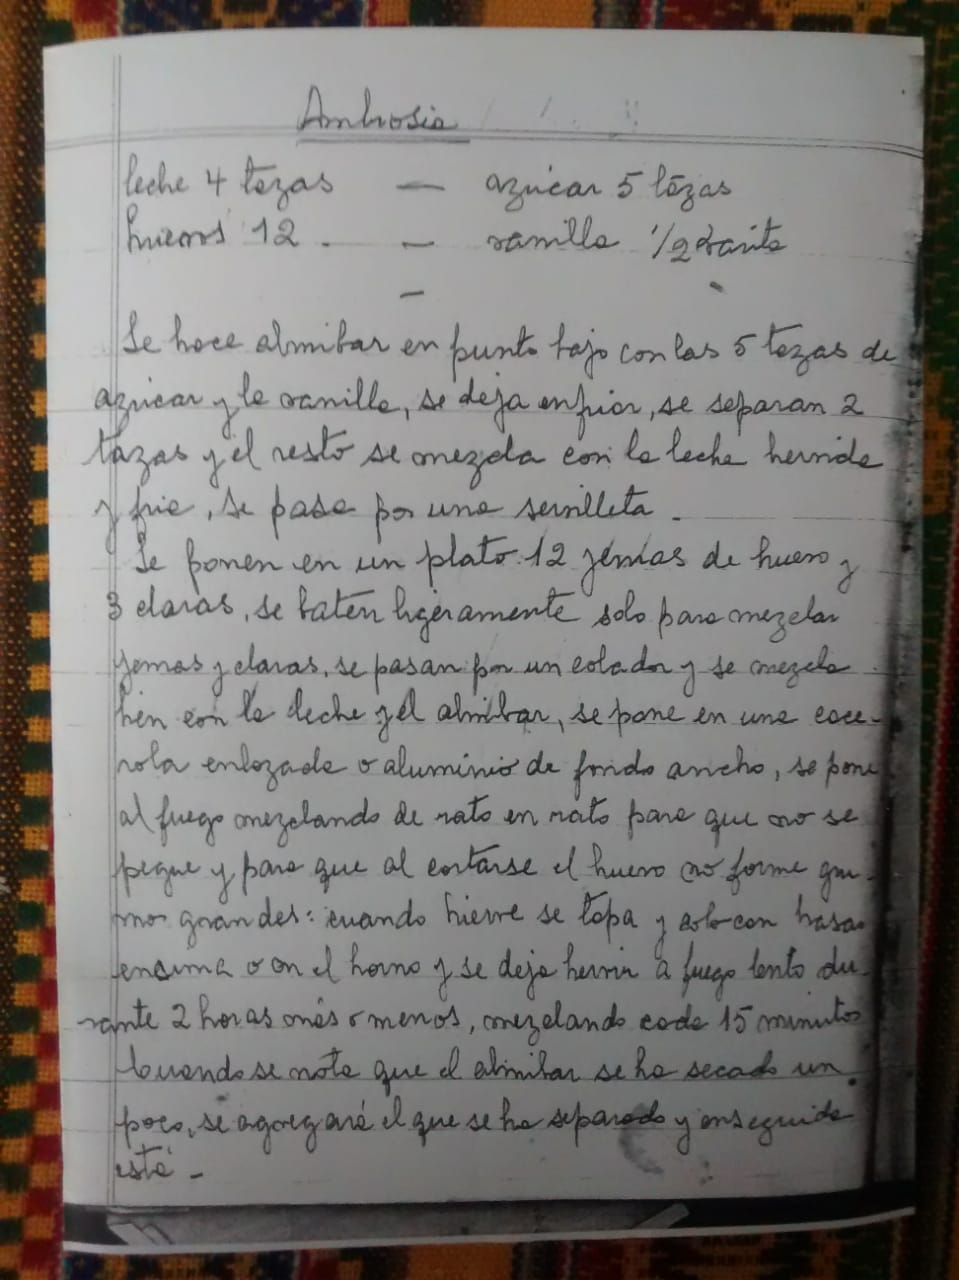 Ambrosia
leche 4 tazas — azúcar 5 tazas
huevos 12 . — vanilla 1/2 varita
—
Se hace almibar en punto bajo con las 5 tazas de
azucar y la vanilla, se deja enfriar, se separan 2
tazas y el resto se mezcla con la leche hervida
y fria, se pasa por una servilleta .
Se ponen en un plato 12 yemas de huevo y
3 claras, se baten ligeramente solo para mezclar
yemas y claras, se pasan por un colador y se mezcla
bien con la leche y el almibar, se pone en una cace-
rola enlozada o aluminio de fondo ancho, se pone
al fuego mezclando de rato en rato para que no se
pegue y para que al cortarse el huevo no forme gru-
mos grandes: cuando hierve se tapa y con brasas
encima o en el horno y se deja hervir a fuego lento du-
rante 2 horas más o menos, mezclando cada 15 minutos
Cuando se nota que el almibar se ha secado un
poco, se agregará el que se ha separado y enseguida
está -